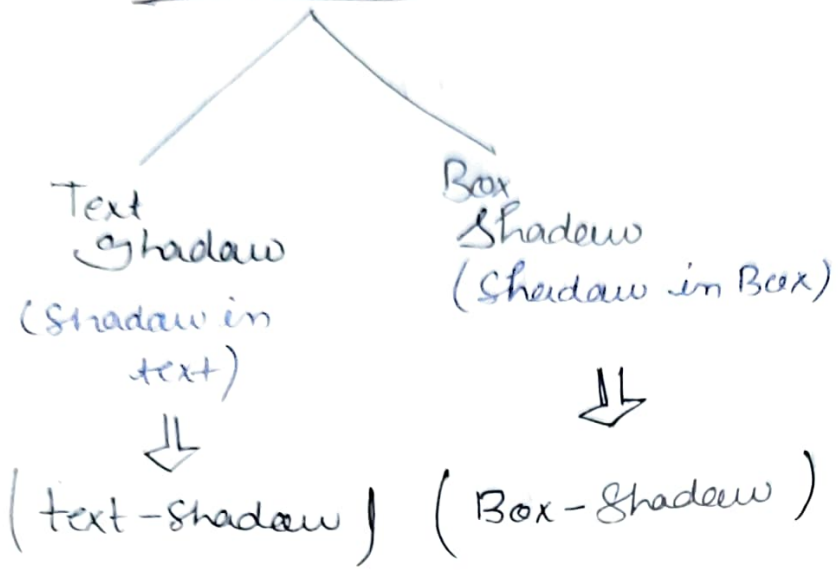 Text
Shadow
(Shadow in
text)
(text-Shadow)
Box
Shadow
(Shadow in Box)
(Box-Shadow)